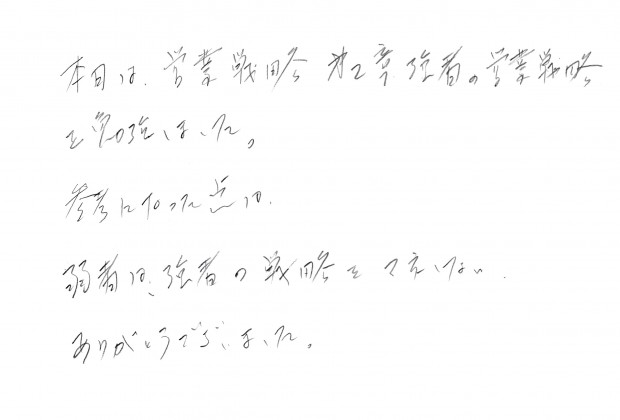 本日は、営業戦略 第2章 強者の営業戦略
を勉強しました。
参考になった点は、
弱者は、強者の戦略を
ありがとうございました。